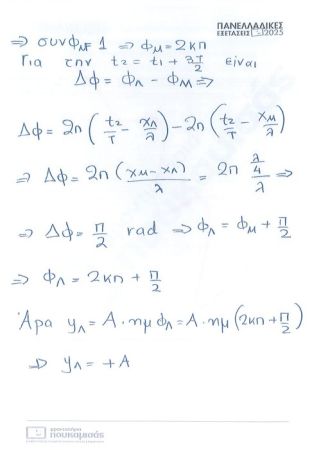 ΠΑΝΕΛΛΑΔΙΚΕΣ
ΕΞΕΤΑΣΕΙΣ 2025
⇒ συνφ_Μ = 1 ⇒ φ_Μ = 2κπ
Για την t₂ = t₁ + 3T/2 είναι
Δφ = φ_Λ - φ_Μ ⇒
Δφ = 2π (t₂/T - x_Λ/λ) - 2π (t₂/T - x_Μ/λ)
⇒ Δφ = 2π (x_Μ - x_Λ)/λ = 2π (λ/4)/λ ⇒
⇒ Δφ = π/2 rad ⇒ φ_Λ = φ_Μ + π/2
⇒ φ_Λ = 2κπ + π/2
Άρα y_Λ = A · ημφ_Λ = A · ημ (2κπ + π/2)
⇒ y_Λ = +A
φροντιστήρια
πουκαμισάς